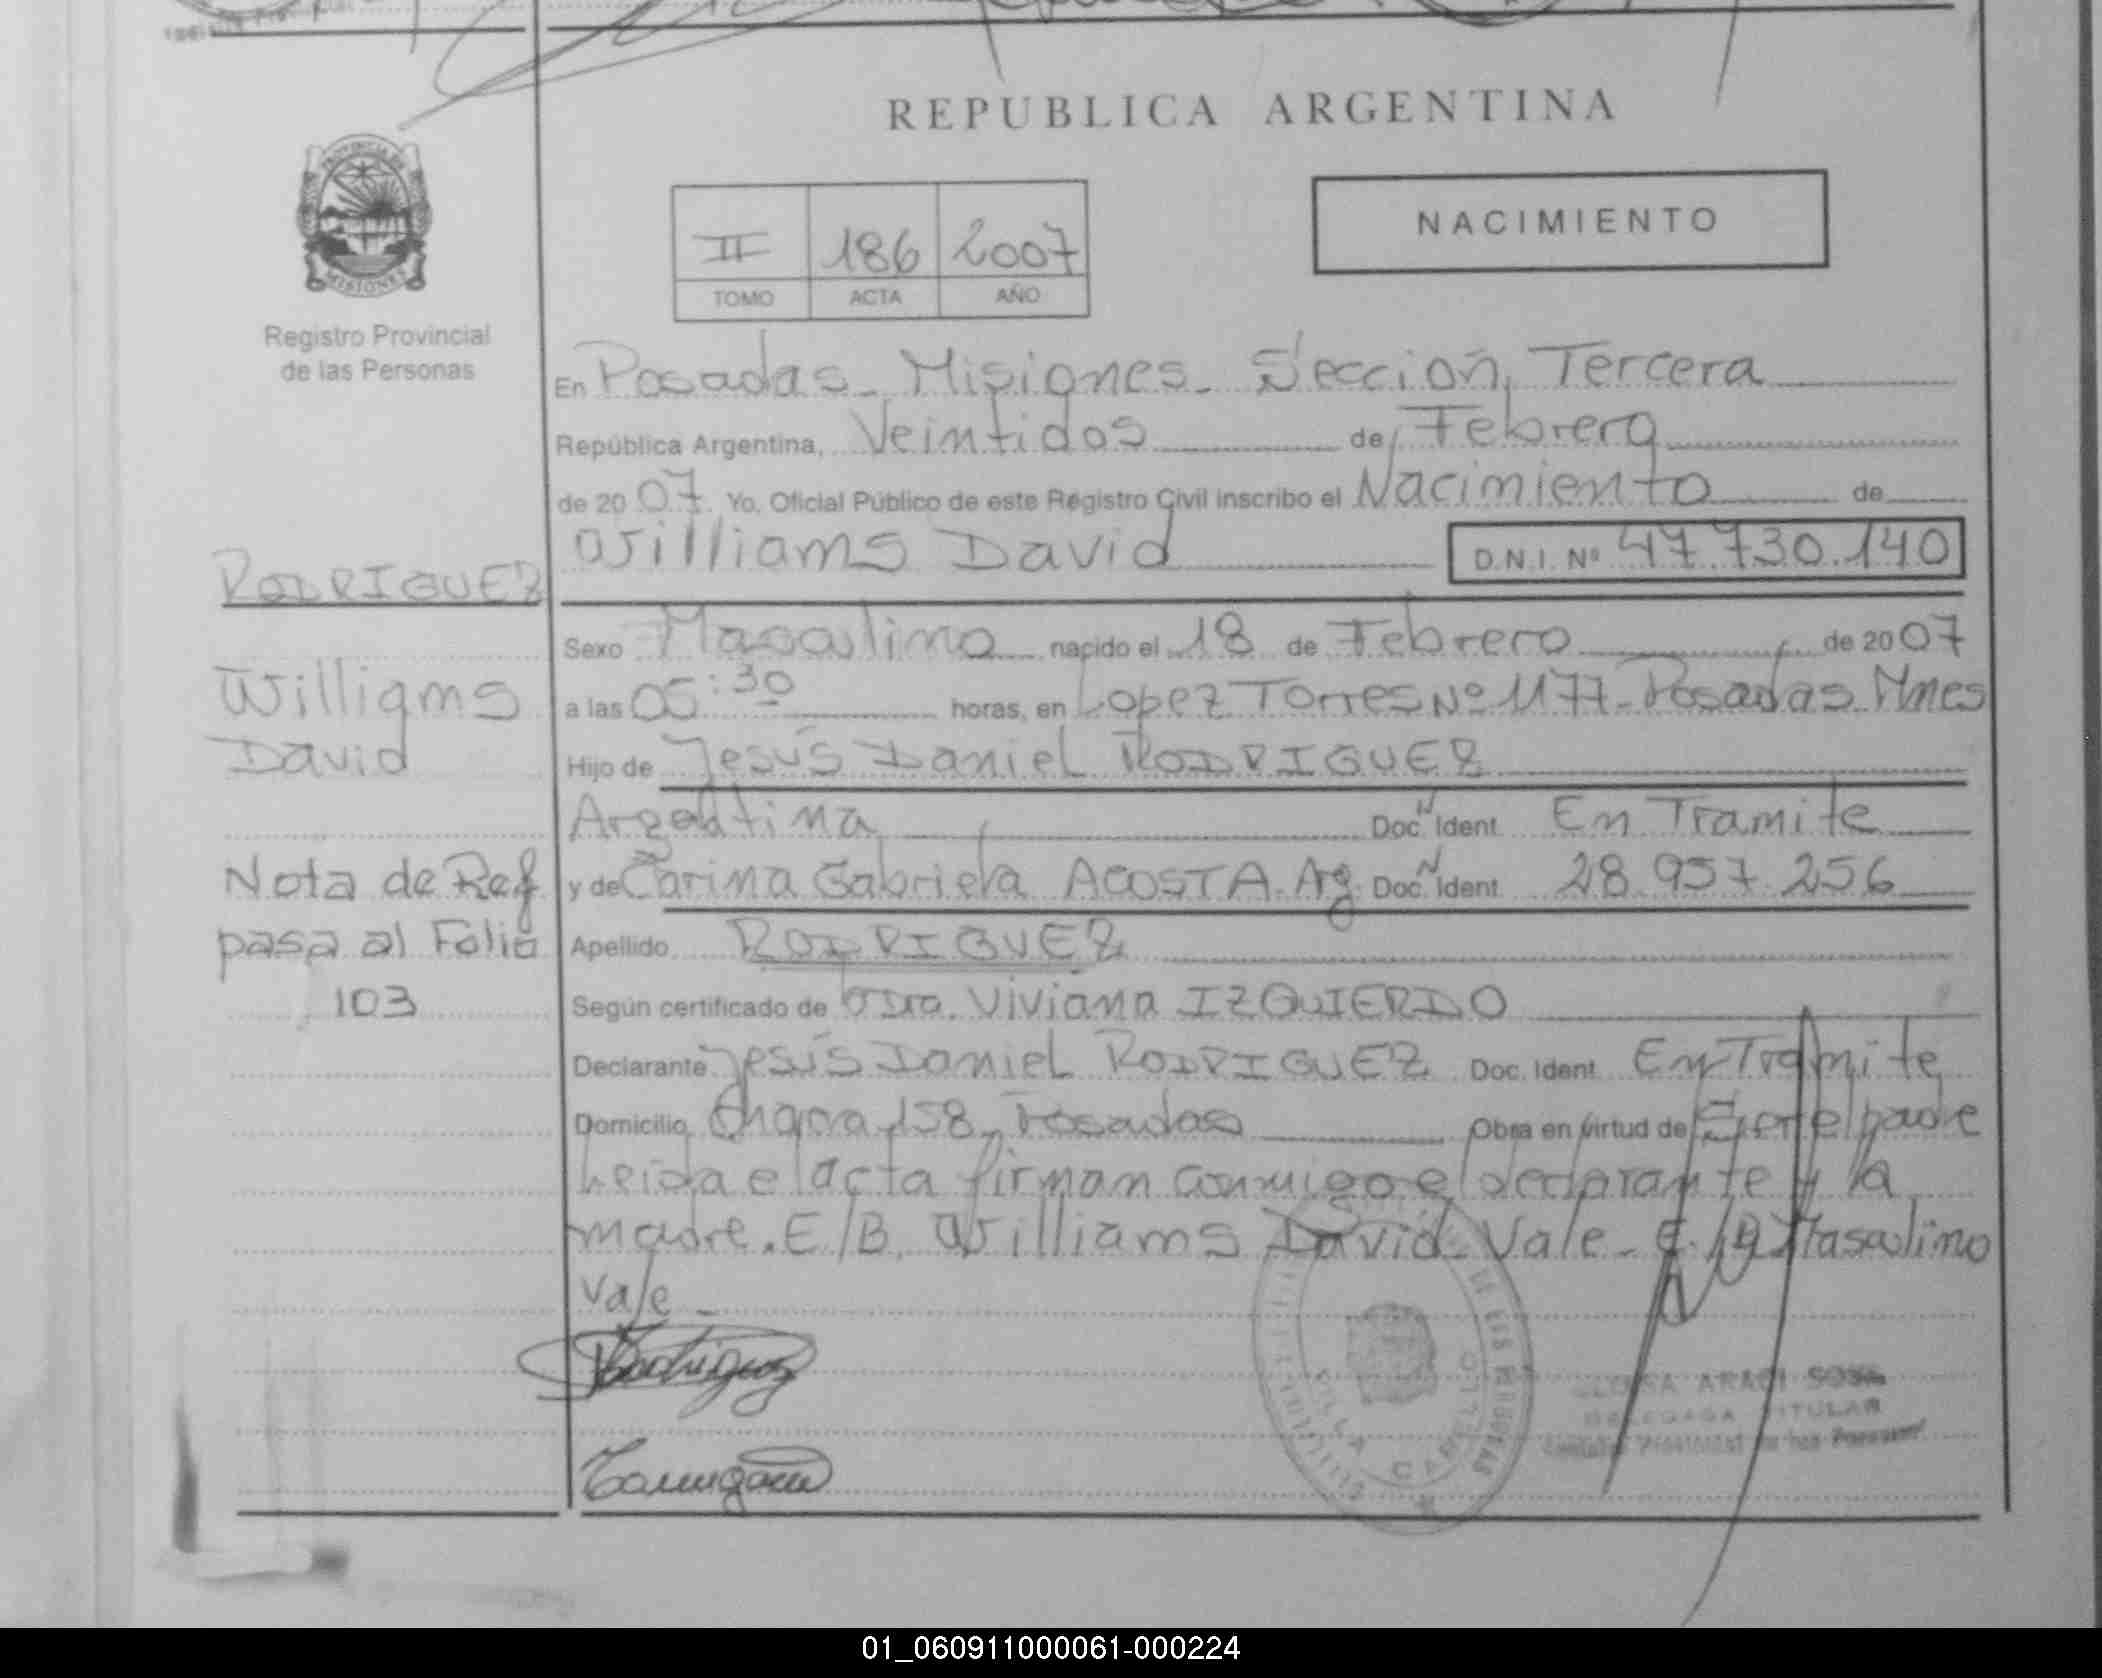 REPUBLICA ARGENTINA
PROVINCIA DE
MISIONES
Registro Provincial
de las Personas
II 186 2007
TOMO ACTA AÑO
NACIMIENTO
En Posadas - Misiones - Sección Tercera
República Argentina, Veintidos de Febrero
de 2007 Yo, Oficial Público de este Registro Civil inscribo el Nacimiento de
Williams David D.N.I. Nº 47.730.140
RODRIGUEZ
Williams
David
Nota de Ref
pasa al Folio
103
Sexo Masculino nacido el 18 de Febrero de 2007
a las 05:30 horas, en Lopez Torres Nº 1177 - Posadas Mnes
Hijo de Jesús Daniel RODRIGUEZ
Argentina Doc. Ident. En Tramite
y de Carina Gabriela ACOSTA - Ag. Doc. Ident. 28.957.256
Apellido RODRIGUEZ
Según certificado de Dra. Viviana IZQUIERDO
Declarante Jesús Daniel RODRIGUEZ Doc. Ident. En Tramite
Domicilio Chacra 158 - Posadas Obra en virtud de Ser el padre
Leida el acta firman conmigo el declarante y la
madre. E/B. Williams David - Vale - E/B Masculino
Vale -
Rodriguez
DE LAS PERSONAS
VILLA CABELLO
ARACI SOSA
DELEGADA TITULAR
01_060911000061-000224